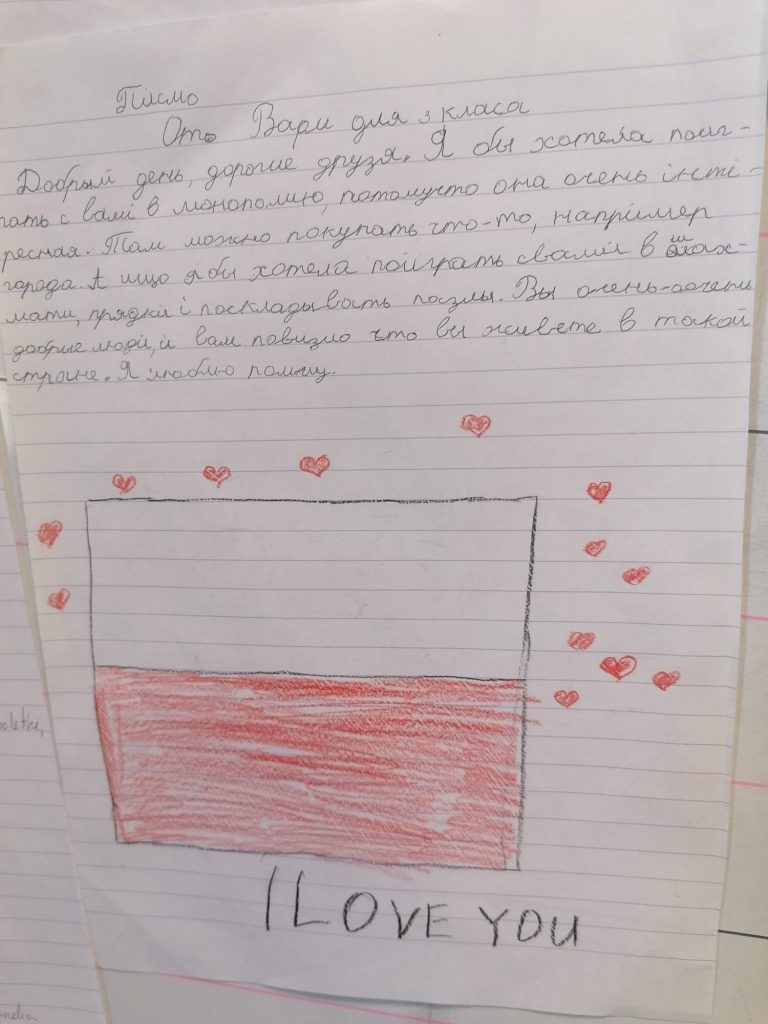 Пісмо
Ото Вари для 3 класа
Добрый день, дорогие друзя. Я бы хотела поиг-
рать с вамі в монополию, потомучто она очень інсті-
ресная. Там можно покупать что-то, напрімер
города. А ищо я бы хотела поіграть свамий в шах-
мати, прядки і поскладывать пазлы. Вы очень-очень
добрые люди, и вам повизло что ви живете в такой
стране. Я люблю полшу.
I LOVE YOU